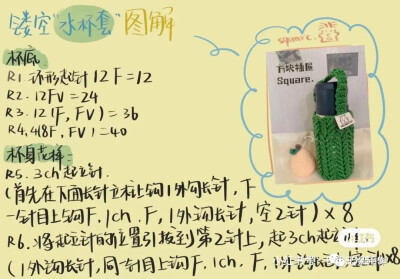 镂空"水杯套"图解
square.
方块插座
Square.
杯底
R1.环形起针 12F=12
R2.12FV=24
R3.12(F,FV)=36
R4.4(8F,FV)=40
杯身花样:
R5.3ch起立针.
(首先在下面长针立柱上钩1外钩长针,下
一针目上钩F.1ch.F,1外钩长针,空2针)×8
R6.将起立针的位置引拔到第2针上,起3ch起立
(1外钩长针,同一针目上钩F.1ch.F,1外
小红书